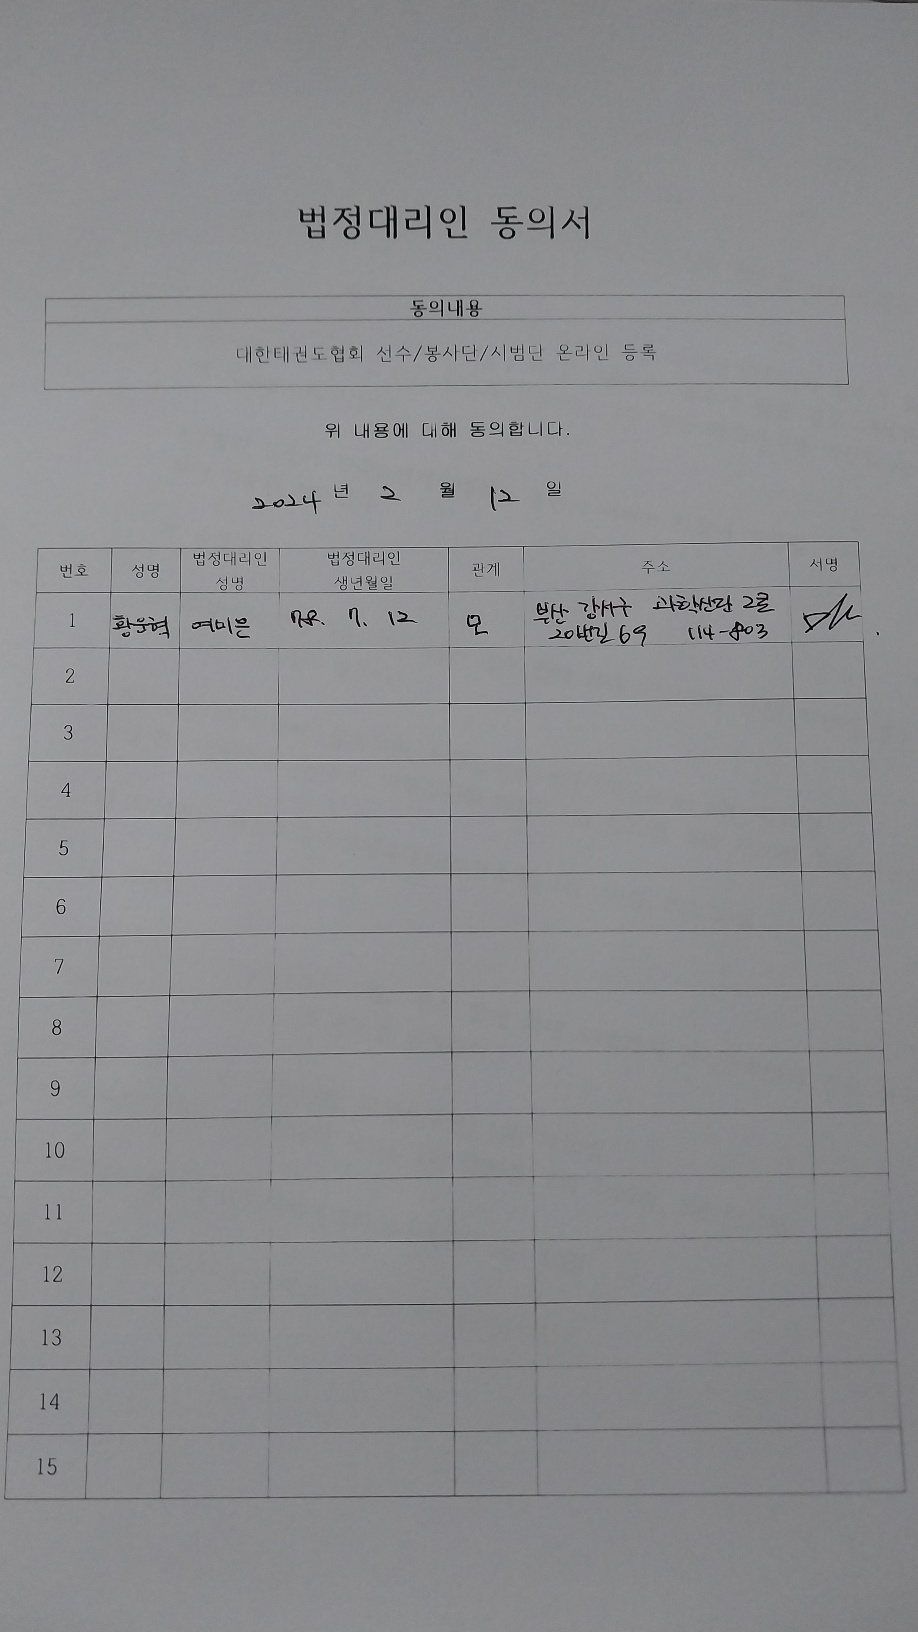 법정대리인 동의서
동의내용
대한태권도협회 선수/봉사단/시범단 온라인 등록
위 내용에 대해 동의합니다.
2024 년 2 월 12 일
번호 성명 법정대리인 성명 법정대리인 생년월일 관계 주소 서명
1 황운혁 여미은 78. 7. 12 모 부산 강서구 과학산단 2로
20번길 69 114-803
2
3
4
5
6
7
8
9
10
11
12
13
14
15